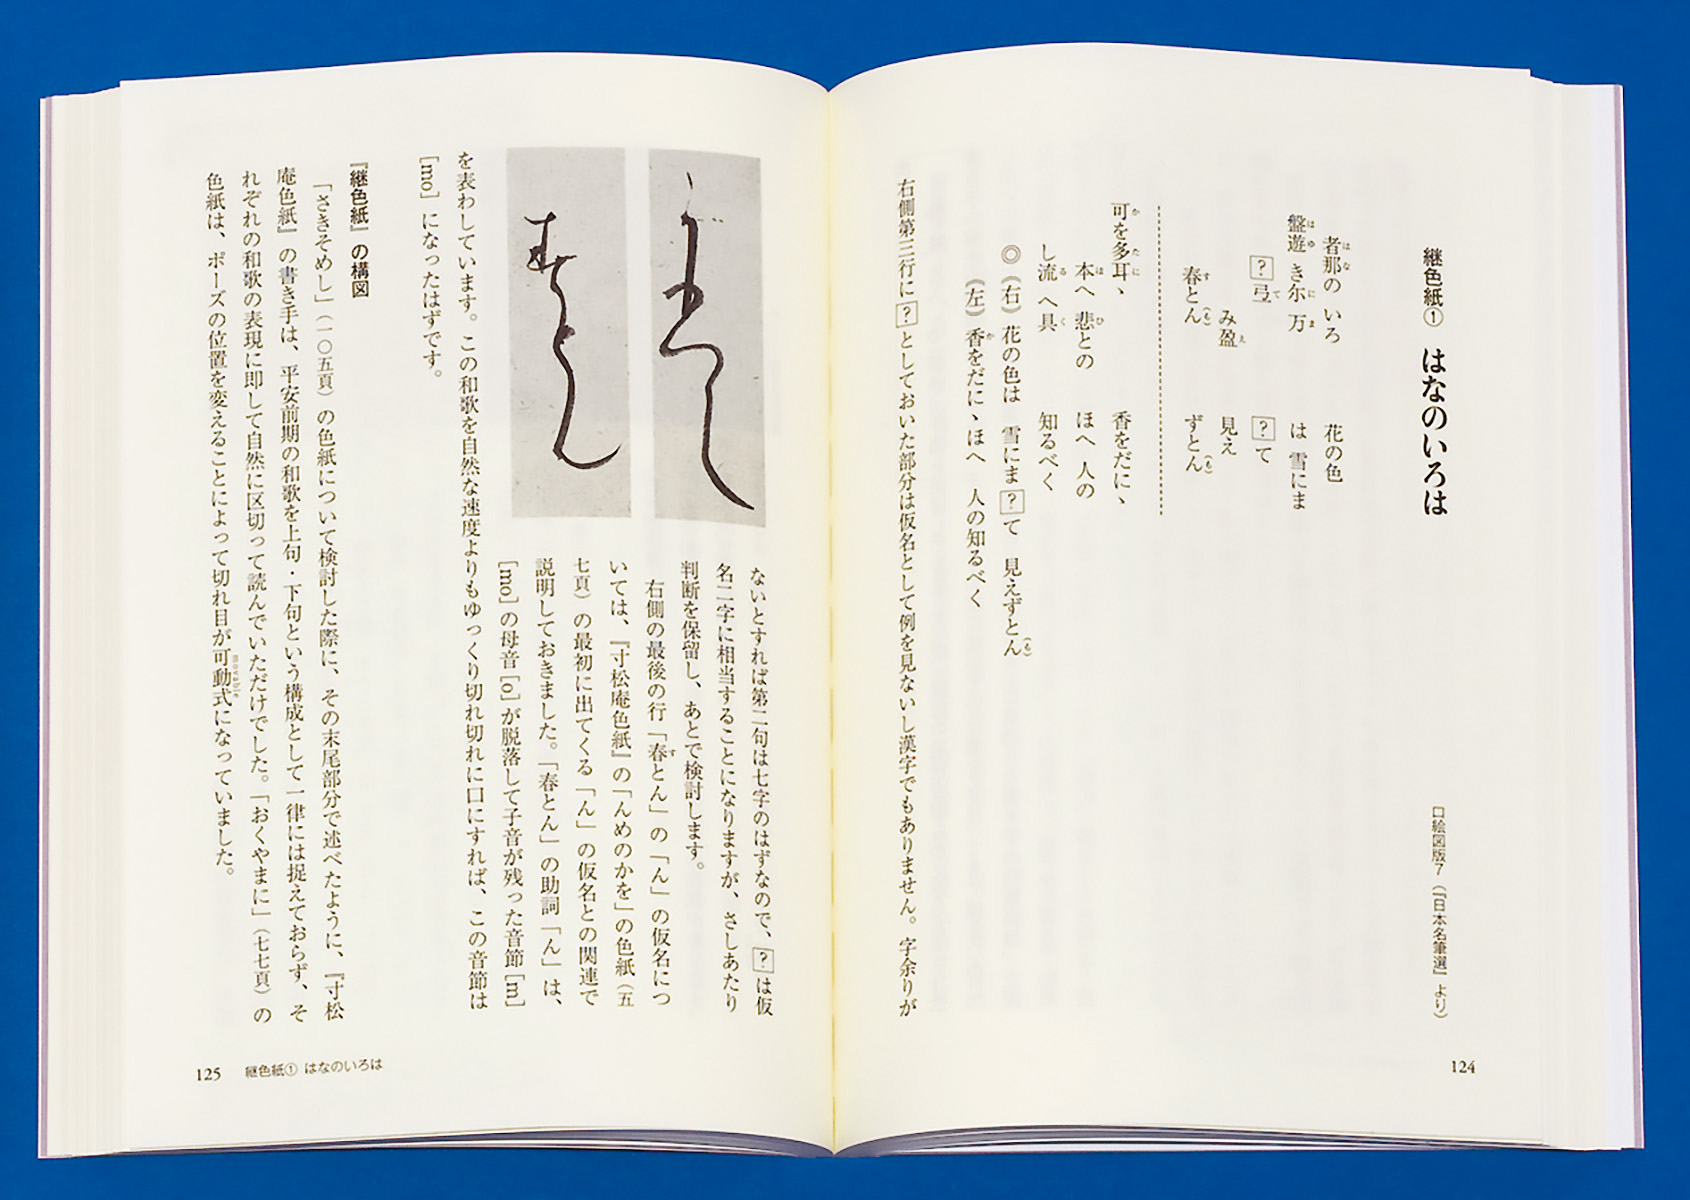 継色紙① はなのいろは
口絵図版7（『日本名筆選』より）
者那の いろ
はな
花の色
盤遊 き尓 万
はゆ に ま
は 雪にま
?弖
て
?て
み盈
え
見え
春とん
す （も）
ずとん
（も）
可を多耳、
か たに
香をだに、
本へ 悲との
ほ ひ
ほへ 人の
し流 へ具
る く
知るべく
◎（右）花の色は 雪にま?て 見えずとん
（も）
（左）香をだに、ほへ 人の知るべく
か
右側第三行に?としておいた部分は仮名として例を見ないし漢字でもありません。字余りが
124
ないとすれば第二句は七字のはずなので、?は仮
名二字に相当することになりますが、さしあたり
判断を保留し、あとで検討します。
右側の最後の行「春とん」の「ん」の仮名につ
す
いては、『寸松庵色紙』の「んめのかを」の色紙（五
七頁）の最初に出てくる「ん」の仮名との関連で
説明しておきました。「春とん」の助詞「ん」は、
[mo]の母音[o]が脱落して子音が残った音節[m]
を表わしています。この和歌を自然な速度よりもゆっくり切れ切れに口にすれば、この音節は
[mo]になったはずです。
『継色紙』の構図
「さきそめし」（一〇五頁）の色紙について検討した際に、その末尾部分で述べたように、『寸松
庵色紙』の書き手は、平安前期の和歌を上句・下句という構成として一律には捉えておらず、そ
れぞれの和歌の表現に即して自然に区切って読んでいただけでした。「おくやまに」（七七頁）の
色紙は、ポーズの位置を変えることによって切れ目が可動式になっていました。
movable
125 継色紙① はなのいろは